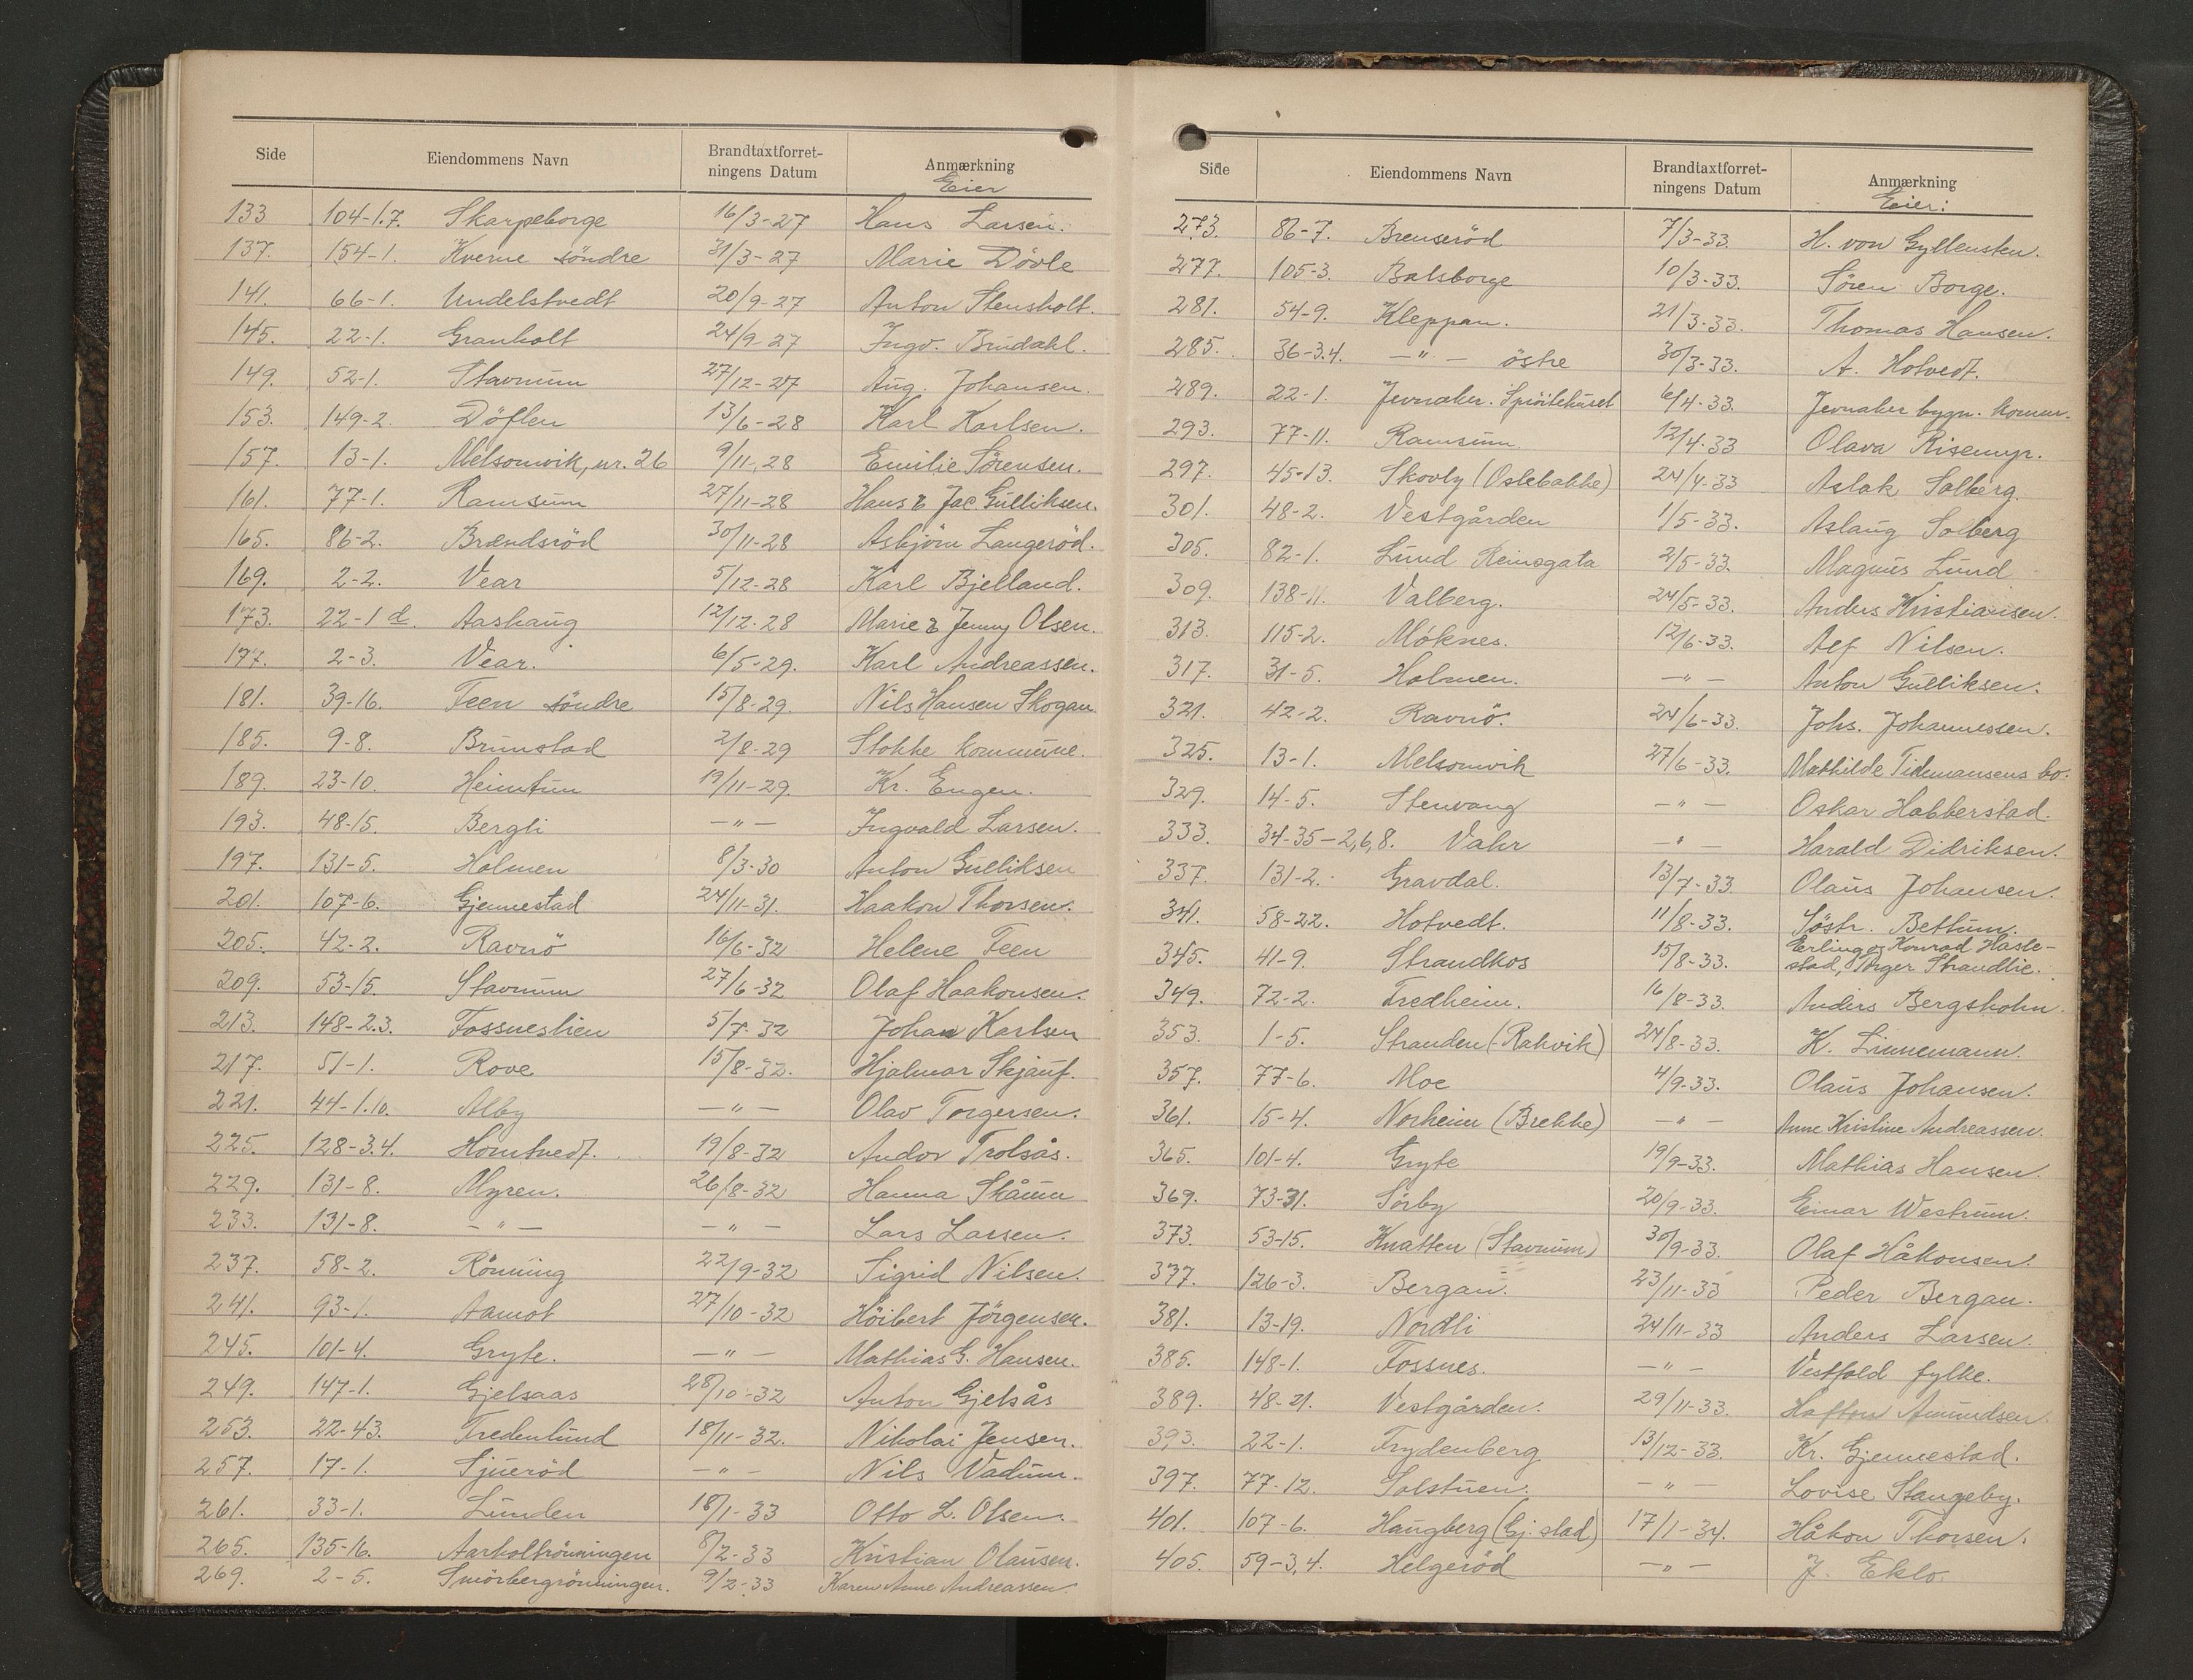 Side Eiendommens Navn Brandtaxtforret-ningens Datum Anmærkning
Eier
133 104-1.7. Skarpeborge 16/3-27 Hans Larsen.
137. 154-1. Kverne söndre 31/3-27 Marie Dövle
141. 66-1. Undelstvedt 20/9-27 Anton Stensholt.
145. 22-1. Granholt 24/9-27 Ingv. Brudahl.
149. 52-1. Stavnum 27/12-27 Aug. Johansen.
153. 149-2. Döflen 13/6-28 Karl Karlsen.
157. 13-1. Melsomvik, nr. 26 9/11-28 Emilie Sörensen.
161. 77-1. Ramsum 27/11-28 Hans & Jac. Gulliksen.
165. 86-2. Brændsröd 30/11-28 Asbjörn Langeröd.
169. 2-2. Vear 5/12-28 Karl Bjelland.
173. 22-1 d. Aashaug 12/12-28 Marie & Jenny Olsen.
177. 2-3. Vear. 6/5-29. Karl Andreassen.
181. 39-16. Feen söndre 15/8-29. Nils Hansen Skogan
185. 9-8. Brunstad 2/8-29 Stokke kommune.
189. 23-10. Heimtun 19/11-29. Kr. Engen.
193. 48-15. Bergli —"— Ingvald Larsen.
197. 131-5. Holmen 8/3-30 Anton Gulliksen
201. 107-6. Gjennestad 24/11-31. Haakon Thorsen.
205. 42-2. Ravnö 16/6-32 Helene Feen
209. 53-15. Stavnum 27/6-32 Olaf Haakonsen.
213. 148-2.3. Fossneslien 5/7-32 Johan Karlsen
217. 51-1. Rove 15/8-32. Hjalmar Skjauf.
221. 44-1.10. Alby —"— Olav Torgersen.
225. 128-3.4. Homtvedt. 19/8-32 Andor Trolsås.
229. 131-8. Myren. 26/8-32 Hanna Skåum
233. 131-8. —"— —"— Lars Larsen.
237. 58-2. Rönning 22/9-32 Sigrid Nilsen.
241. 93-1. Aamot 27/10-32 Höibert Jörgensen.
245. 101-4. Gryte. —"— Mathias G. Hansen.
249. 147-1. Gjelsaas 28/10-32 Anton Gjelsås
253. 22-43. Fredenlund 18/11-32. Nikolai Jensen.
257. 17-1. Sjueröd —"— Nils Vadum.
261. 33-1. Lunden 18/1-33 Otto L. Olsen.
265. 135-16. Aarholtrönningen 8/2-33 Kristian Olausen.
269. 2-5. Smörbergrönningen. 9/2-33 Karen Anne Andreassen
Side Eiendommens Navn Brandtaxtforret-ningens Datum Anmærkning
Eier:
273. 86-7. Brenseröd 7/3-33. H. von Gyllensten.
277. 105-3. Balsborge 10/3-33. Sören Borge.
281. 54-9. Kleppan. 21/3-33. Thomas Hansen.
285. 36-3.4. —"— östre 30/3-33. A. Hotvedt.
289. 22-1. Jevnaker. Spröitehuset 6/4-33. Jevnaker bygn. komm.
293. 77-11. Ramsum 12/4-33 Olava Risemyr.
297. 45-13. Skovly (Oslebakke) 24/4-33 Aslak Solberg.
301. 48-2. Vestgården 1/5-33. Aslaug Solberg
305. 82-1. Lund Reinsgata 2/5-33. Magnus Lund
309. 138-11. Valberg. 24/5-33. Anders Kristiansen.
313. 115-2. Möknes. 12/6-33. Alf Nilsen.
317. 31-5. Holmen. —"— Anton Gulliksen.
321. 42-2. Ravnö. 24/6-33. Johs. Johannessen.
325. 13-1. Melsomvik 27/6-33. Mathilde Tidemansens bo.
329. 14-5. Stenvang —"— Oskar Habberstad.
333. 34-35-2,6,8. Vahr —"— Harald Didriksen.
337. 131-2. Gravdal. 13/7-33 Olaus Johansen.
341. 58-22. Hotvedt. 11/8-33. Söstr. Bettum.
345. 41-9. Strandkos 15/8-33. Erling og Konrad Hasle-
stad, Torger Strandlie.
349. 72-2. Fredheim. 16/8-33. Anders Bergsholm.
353. 1-5. Stranden (Rakvik) 24/8-33. K. Linnemann.
357. 77-6. Moe 4/9-33. Olaus Johansen.
361. 15-4. Norheim (Brekke) —"— Anne Kristine Andreassen.
365. 101-4. Gryte 19/9-33. Mathias Hansen.
369. 73-31. Sörby 20/9-33. Einar Westrum.
373. 53-15. Knatten (Stavnum) 30/9-33. Olaf Håkonsen.
377. 126-3. Bergan. 23/11-33 Peder Bergan.
381. 13-19. Nordli 24/11-33 Anders Larsen.
385. 148-1. Fossnes. —"— Vestfold fylke.
389. 48-21. Vestgården. 29/11-33. Hafton Amundsen.
393. 22-1. Frydenberg 13/12-33. Kr. Gjennestad.
397. 77-12. Solstuen. —"— Lovise Stangeby.
401. 107-6. Haugberg (Gj. stad) 17/1-34. Håkon Thorsen.
405. 59-3,4. Helgeröd —"— J. Eklo.